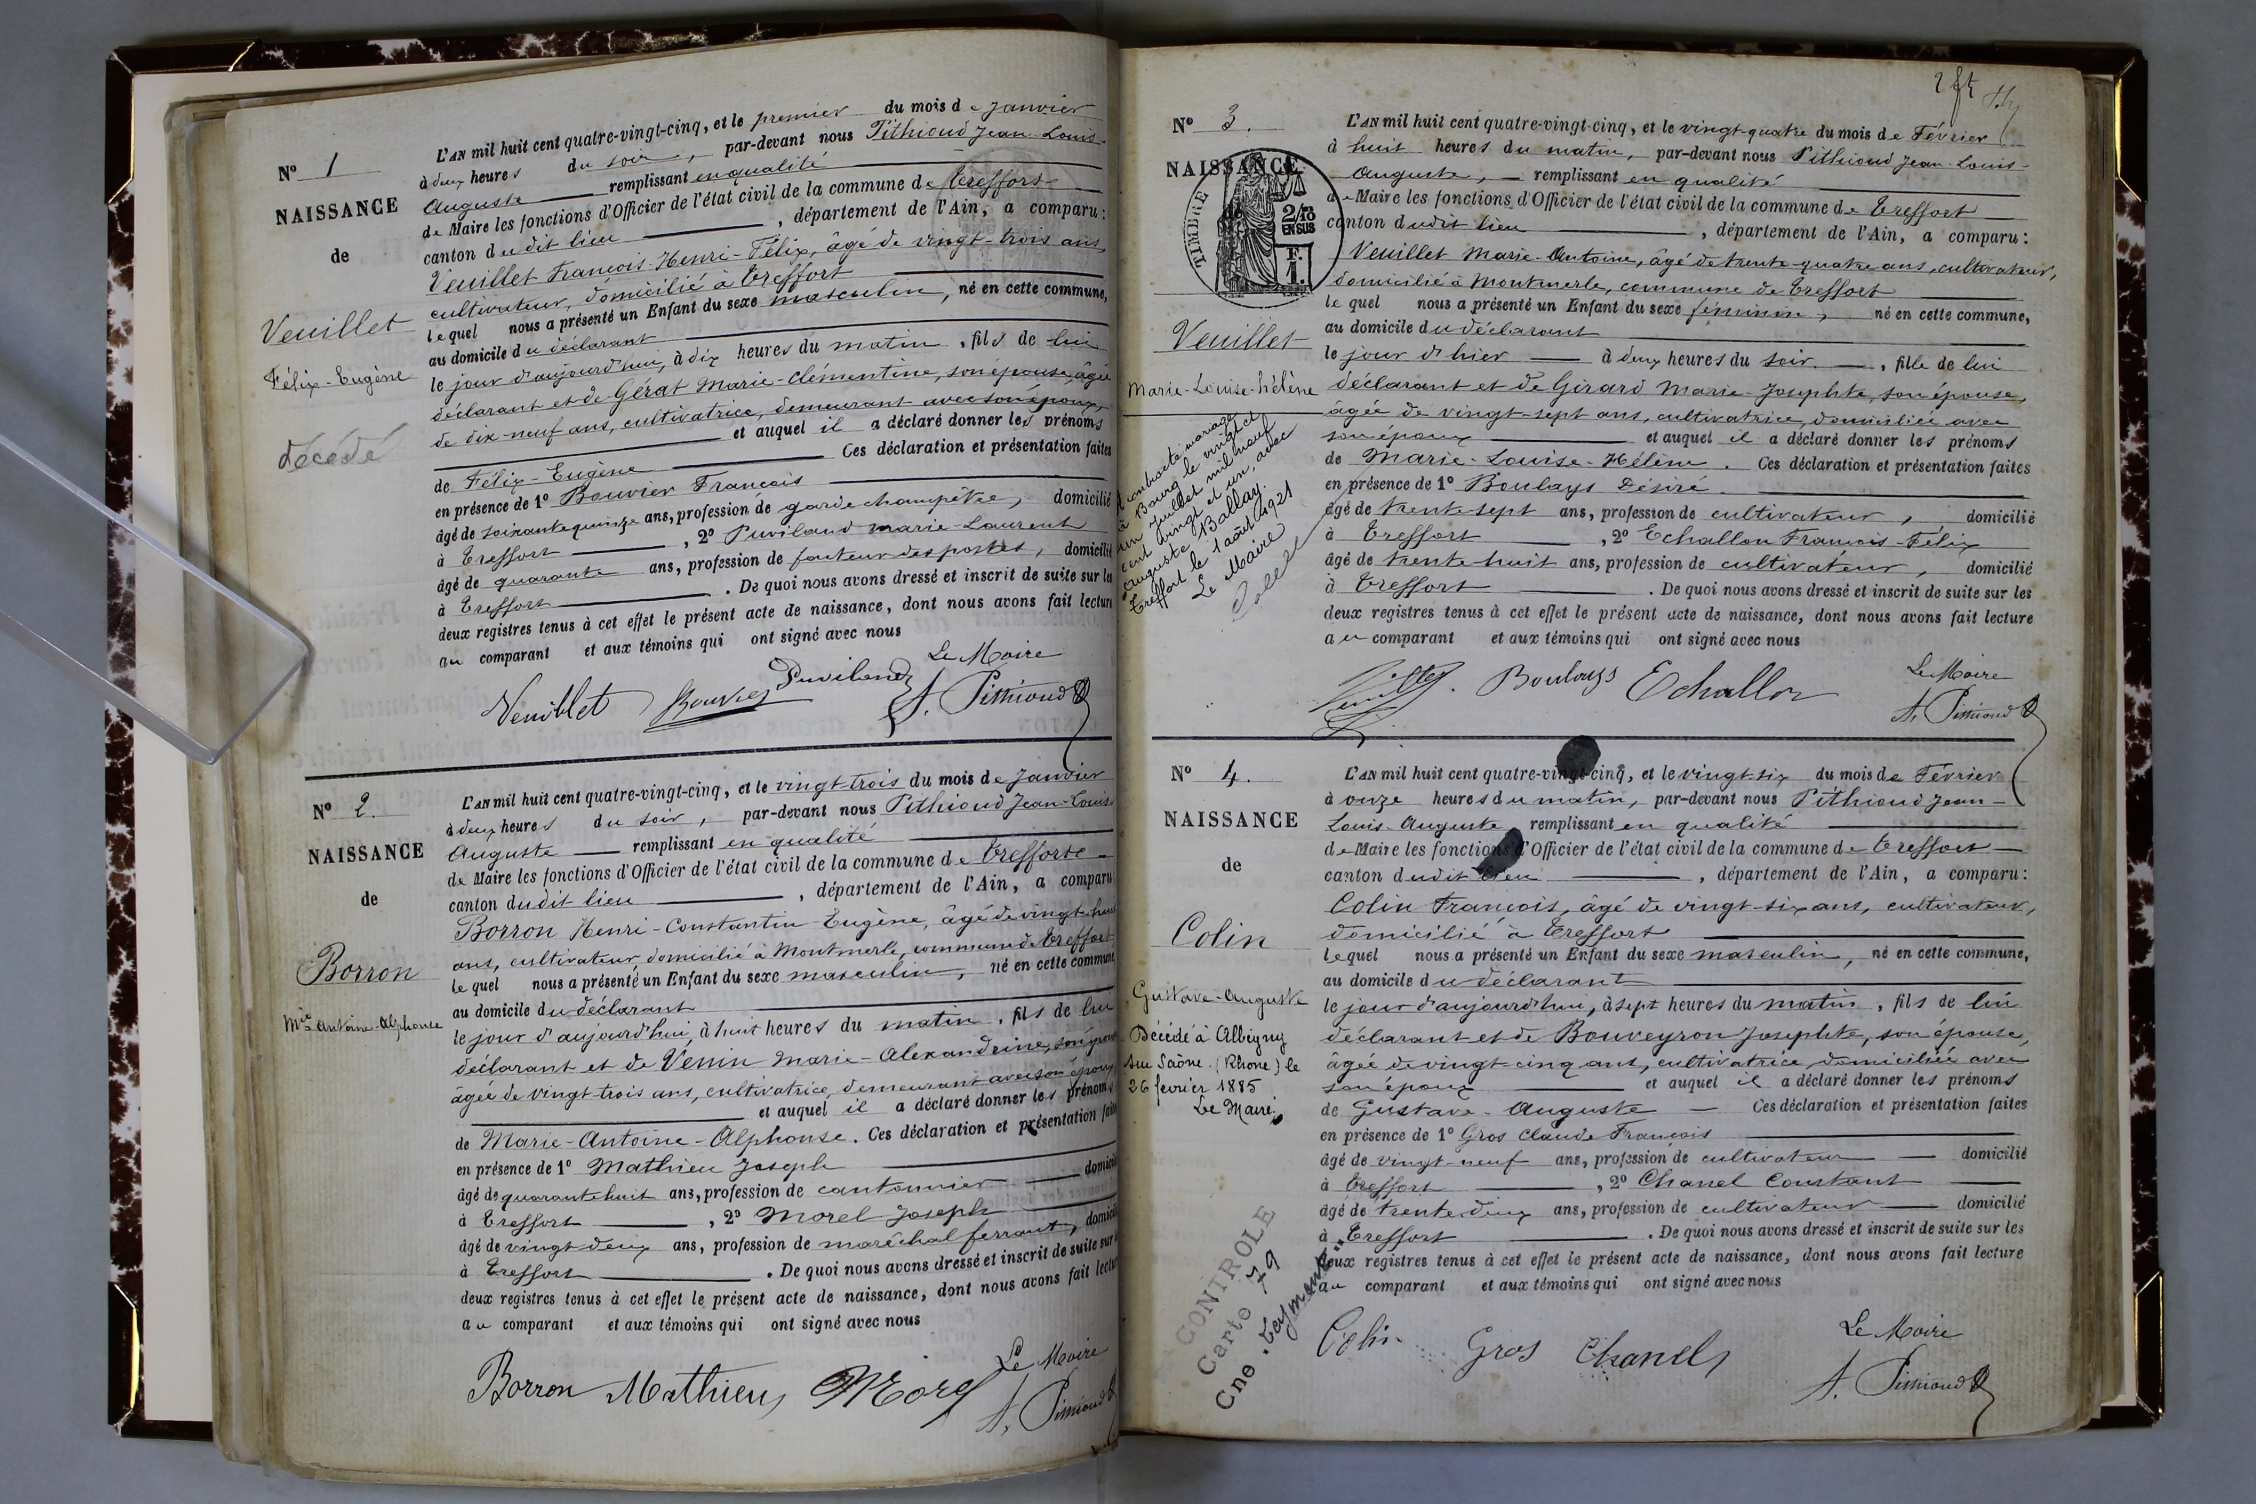 N° 1
NAISSANCE
de
Veuillet
Félix-Eugène
décédé
L'AN mil huit cent quatre-vingt-cinq, et le premier du mois de Janvier
à deux heures du soir, par-devant nous Pithioud Jean-Louis-
Auguste remplissant en qualité
de Maire les fonctions d'Officier de l'état civil de la commune de Treffort
canton dudit lieu, département de l'Ain, a comparu:
Veuillet François-Henri-Félix, âgé de vingt-trois ans,
cultivateur, domicilié à Treffort
lequel nous a présenté un Enfant du sexe masculin, né en cette commune,
au domicile du déclarant
le jour d'aujourd'hui, à dix heures du matin, fils de lui
déclarant et de Gérat Marie-Clémentine, son épouse, âgée
de dix-neuf ans, cultivatrice, demeurant avec son époux,
et auquel il a déclaré donner les prénoms
de Félix-Eugène Ces déclaration et présentation faites
en présence de 1° Bouvier François
âgé de soixante quinze ans, profession de garde champêtre, domicilié
à Treffort, 2° Puviland Marie-Laurent
âgé de quarante ans, profession de facteur des postes, domicilié
à Treffort. De quoi nous avons dressé et inscrit de suite sur les
deux registres tenus à cet effet le présent acte de naissance, dont nous avons fait lecture
au comparant et aux témoins qui ont signé avec nous
Le Maire
Veuillet Bouvier Puviland A. Pithioud
N° 2.
NAISSANCE
de
Borron
Mie-Antoine-Alphonse
L'AN mil huit cent quatre-vingt-cinq, et le vingt-trois du mois de Janvier
à deux heures du soir, par-devant nous Pithioud Jean-Louis-
Auguste remplissant en qualité
de Maire les fonctions d'Officier de l'état civil de la commune de Treffort
canton dudit lieu, département de l'Ain, a comparu
Borron Henri-Constantin-Eugène, âgé de vingt-huit
ans, cultivateur, domicilié à Montmerle, commune de Treffort
lequel nous a présenté un Enfant du sexe masculin, né en cette commune
au domicile du déclarant
le jour d'aujourd'hui, à huit heures du matin, fils de lui
déclarant et de Venin Marie-Alexandrine, son épouse
âgée de vingt-trois ans, cultivatrice, demeurant avec son époux
et auquel il a déclaré donner les prénoms
de Marie-Antoine-Alphonse. Ces déclaration et présentation faites
en présence de 1° Mathieu Joseph
âgé de quarante huit ans, profession de cantonnier domicilié
à Treffort, 2° Morel Joseph
âgé de vingt-deux ans, profession de maréchal ferrant, domicilié
à Treffort. De quoi nous avons dressé et inscrit de suite sur
deux registres tenus à cet effet le présent acte de naissance, dont nous avons fait lecture
au comparant et aux témoins qui ont signé avec nous
Le Maire
Borron Mathieu Morel A. Pithioud
N° 3.
NAISSANCE
de
TIMBRE
2/10 EN SUS
F. 1.
Veuillet
Marie-Louise-Hélène
A contracté mariage
à Bourg le vingt et
un Juillet mil neuf
cent vingt et un, avec
Auguste Ballay.
Treffort le 1 août 1921
Le Maire
L'AN mil huit cent quatre-vingt-cinq, et le vingt-quatre du mois de Février
à huit heures du matin, par-devant nous Pithioud Jean-Louis-
Auguste, remplissant en qualité
de Maire les fonctions d'Officier de l'état civil de la commune de Treffort
canton dudit lieu, département de l'Ain, a comparu:
Veuillet Marie-Antoine, âgé de trente-quatre ans, cultivateur,
domicilié à Montmerle, commune de Treffort
lequel nous a présenté un Enfant du sexe féminin, né en cette commune,
au domicile du déclarant
le jour d'hier à deux heures du soir, fille de lui
déclarant et de Girard Marie-Josephte, son épouse,
âgée de vingt-sept ans, cultivatrice, domiciliée avec
son époux et auquel il a déclaré donner les prénoms
de Marie-Louise-Hélène. Ces déclaration et présentation faites
en présence de 1° Boulays Désiré.
âgé de trente-sept ans, profession de cultivateur, domicilié
à Treffort, 2° Echallon François-Félix
âgé de trente-huit ans, profession de cultivateur, domicilié
à Treffort. De quoi nous avons dressé et inscrit de suite sur les
deux registres tenus à cet effet le présent acte de naissance, dont nous avons fait lecture
au comparant et aux témoins qui ont signé avec nous
Le Maire
Boulays Echallon A. Pithioud
N° 4.
NAISSANCE
de
Colin
Gustave-Auguste
Décédé à Albigny
sur Saône (Rhône) le
26 février 1885
Le Maire
CONTROLE
Carte 79
L'AN mil huit cent quatre-vingt-cinq, et le vingt-six du mois de Février
à onze heures du matin, par-devant nous Pithioud Jean-
Louis-Auguste remplissant en qualité
de Maire les fonctions d'Officier de l'état civil de la commune de Treffort
canton dudit lieu, département de l'Ain, a comparu:
Colin François, âgé de vingt-six ans, cultivateur,
domicilié à Treffort
lequel nous a présenté un Enfant du sexe masculin, né en cette commune,
au domicile du déclarant
le jour d'aujourd'hui, à sept heures du matin, fils de lui
déclarant et de Bouveyron Josephte, son épouse,
âgée de vingt-cinq ans, cultivatrice domiciliée avec
son époux et auquel il a déclaré donner les prénoms
de Gustave-Auguste Ces déclaration et présentation faites
en présence de 1° Gros Claude François
âgé de vingt-neuf ans, profession de cultivateur domicilié
à Treffort, 2° Chanel Constant
âgé de trente-deux ans, profession de cultivateur domicilié
à Treffort. De quoi nous avons dressé et inscrit de suite sur les
deux registres tenus à cet effet le présent acte de naissance, dont nous avons fait lecture
au comparant et aux témoins qui ont signé avec nous
Le Maire
Colin Gros Chanel A. Pithioud